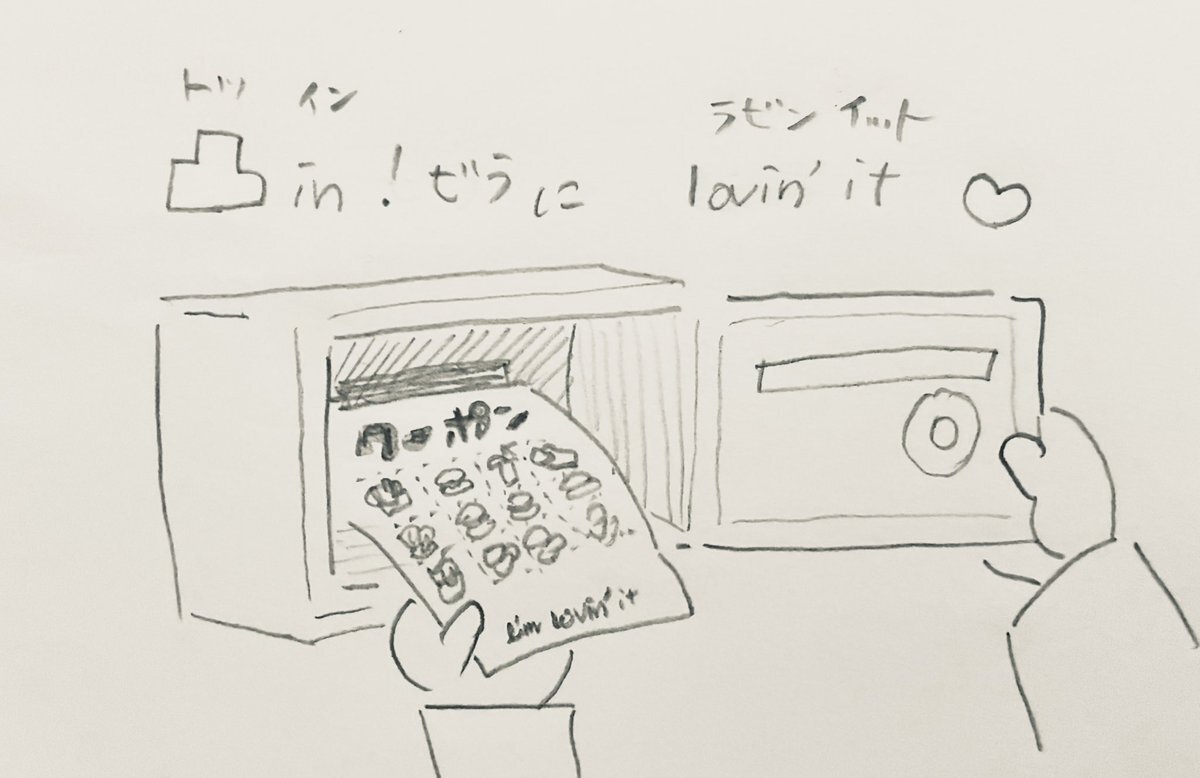 トツ イン ラビン イット
凸 in！ビラに lovin' it ♡
クーポン
i'm lovin' it